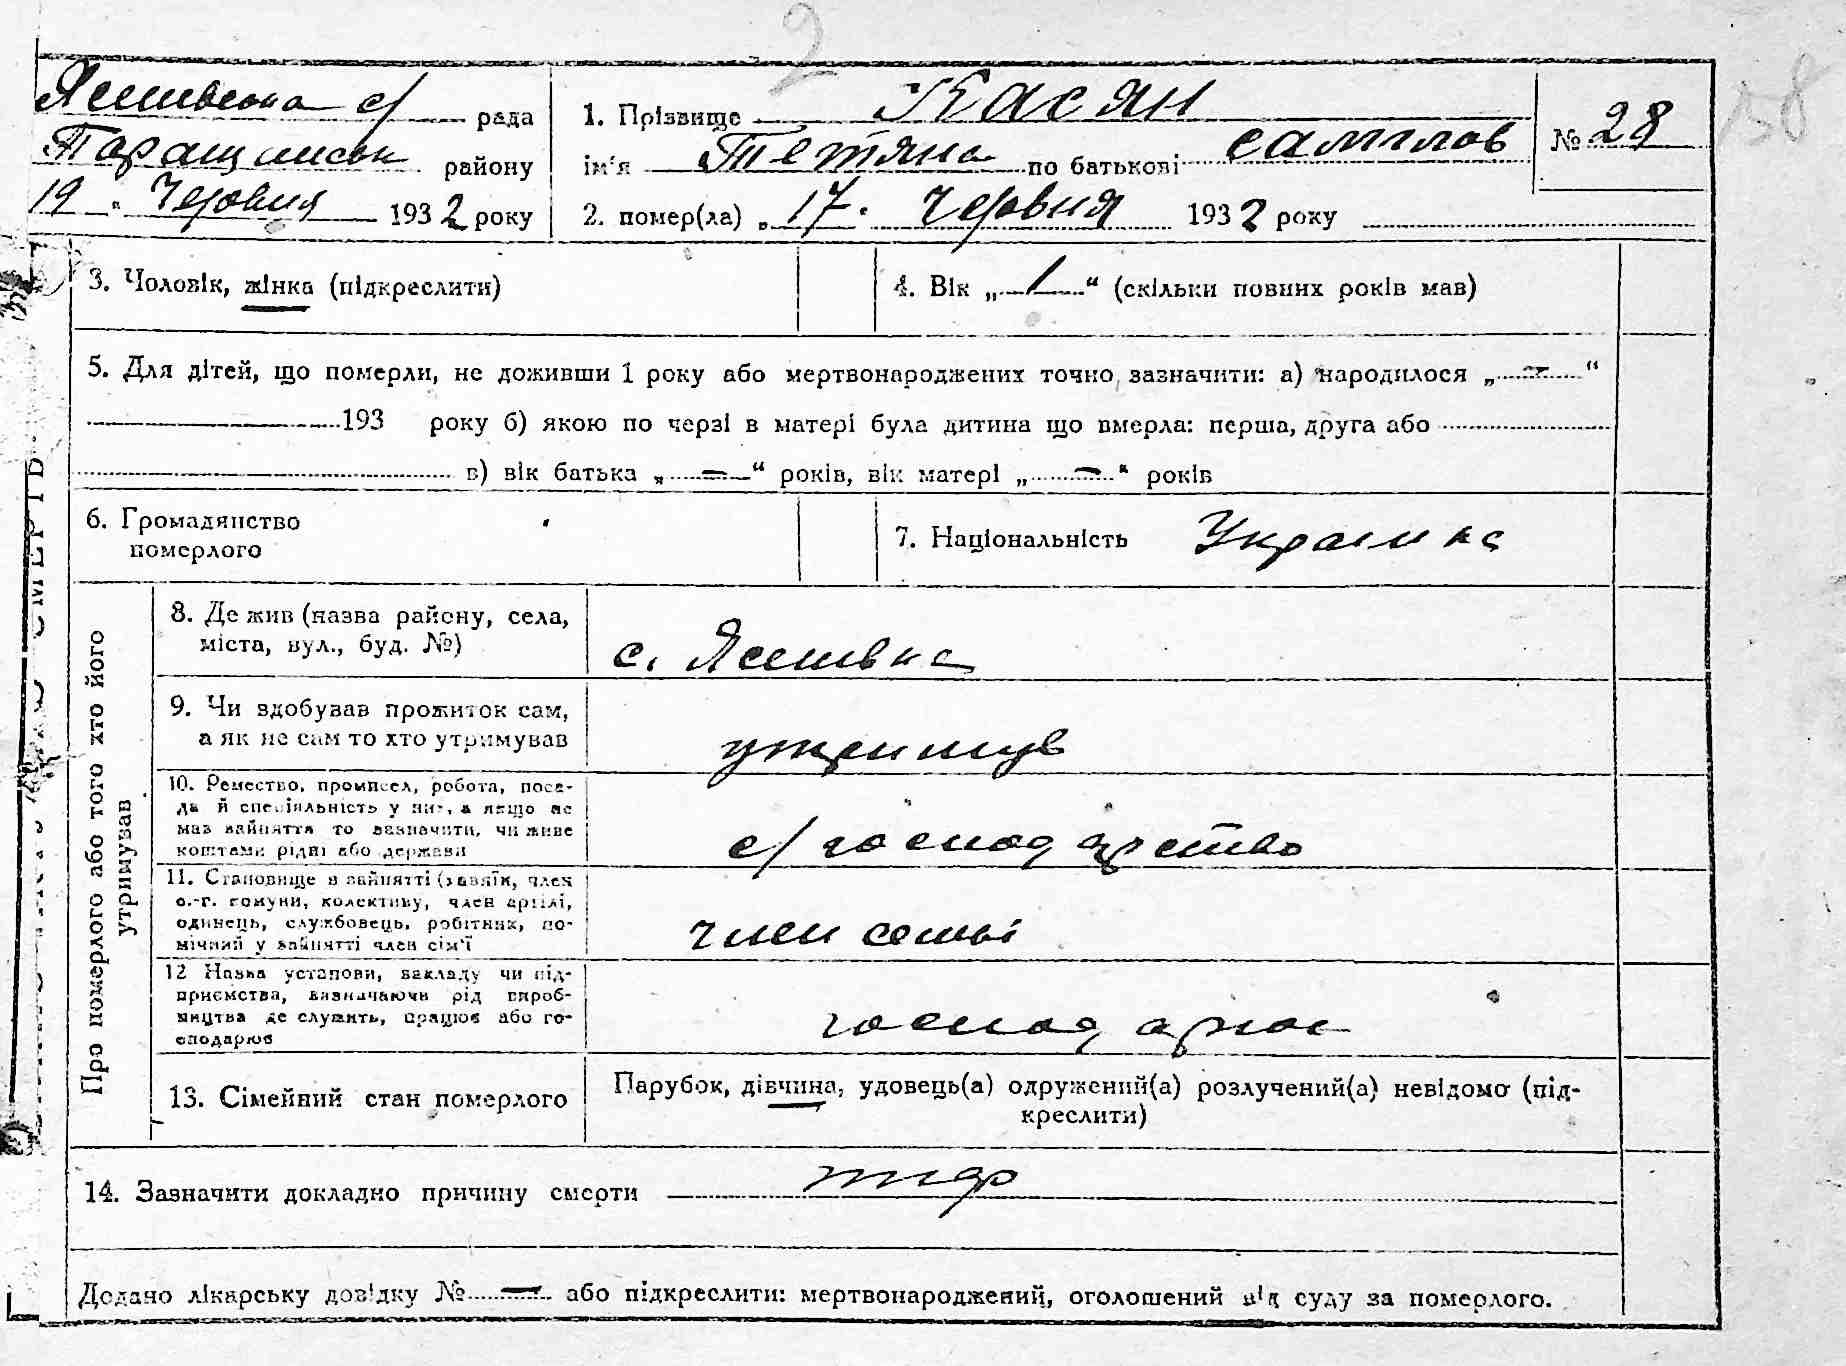 2
158
Ясинівська с/ рада
Таращанськ району
19 „ Червня 1932 року
1. Прізвище Касян
ім'я Тетяна по батькові
№ 28
2. помер(ла) „17. Червня 1932 року
3. Чоловік, жінка (підкреслити)
4. Вік „ 1 “ (скільки повних років мав)
5. Для дітей, що померли, не доживши 1 року або мертвонароджених точно зазначити: а) народилося „ - “
193 року б) якою по черзі в матері була дитина що вмерла: перша, друга або
в) вік батька „ = “ років, вік матері „ = “ років
6. Громадянство
померлого
7. Національність Українка
Про померлого або того хто його
утримував
8. Де жив (назва району, села,
міста, вул., буд. №)
с. Ясинівка
9. Чи здобував прожиток сам,
а як не сам то хто утримував
утримув
10. Ремество, промисел, робота, поса-
да й спеціальність у ній, а якщо не
мав зайняття то зазначити, чи живе
коштами рідні або держави
с/ господарство
11. Становище в зайнятті (хазяїн, член
с.-г. комуни, колективу, член артілі,
одинець, службовець, робітник, по-
мічний у зайнятті член сім'ї
член семьї
12 Назва установи, закладу чи під-
приємства, визначаючи рід вироб-
ництва де служить, працює або го-
сподарює
13. Сімейний стан померлого
Парубок, дівчина, удовець(а) одружений(а) розлучений(а) невідомо (під-
креслити)
14. Зазначити докладно причину смерти тиф
Додано лікарську довідку № — або підкреслити: мертвонароджений, оголошений від суду за померлого.